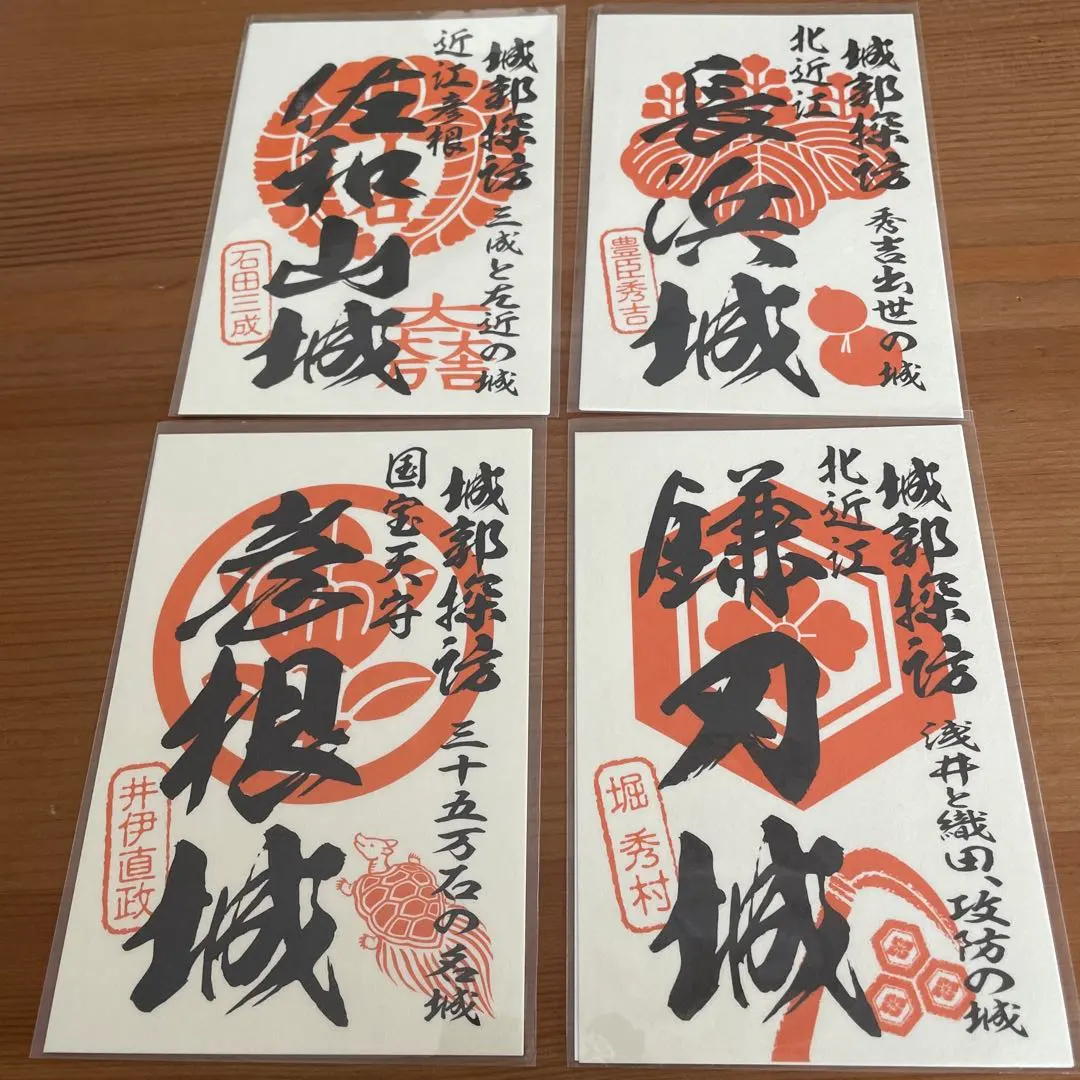 城郭探訪
近江彦根
佐和山城
三成と左近の城
石田三成
大一大万大吉
城郭探訪
北近江
長浜城
秀吉出世の城
豊臣秀吉
城郭探訪
国宝天守
彦根城
三十五万石の名城
井伊直政
城郭探訪
北近江
鎌刃城
浅井と織田、攻防の城
堀 秀村